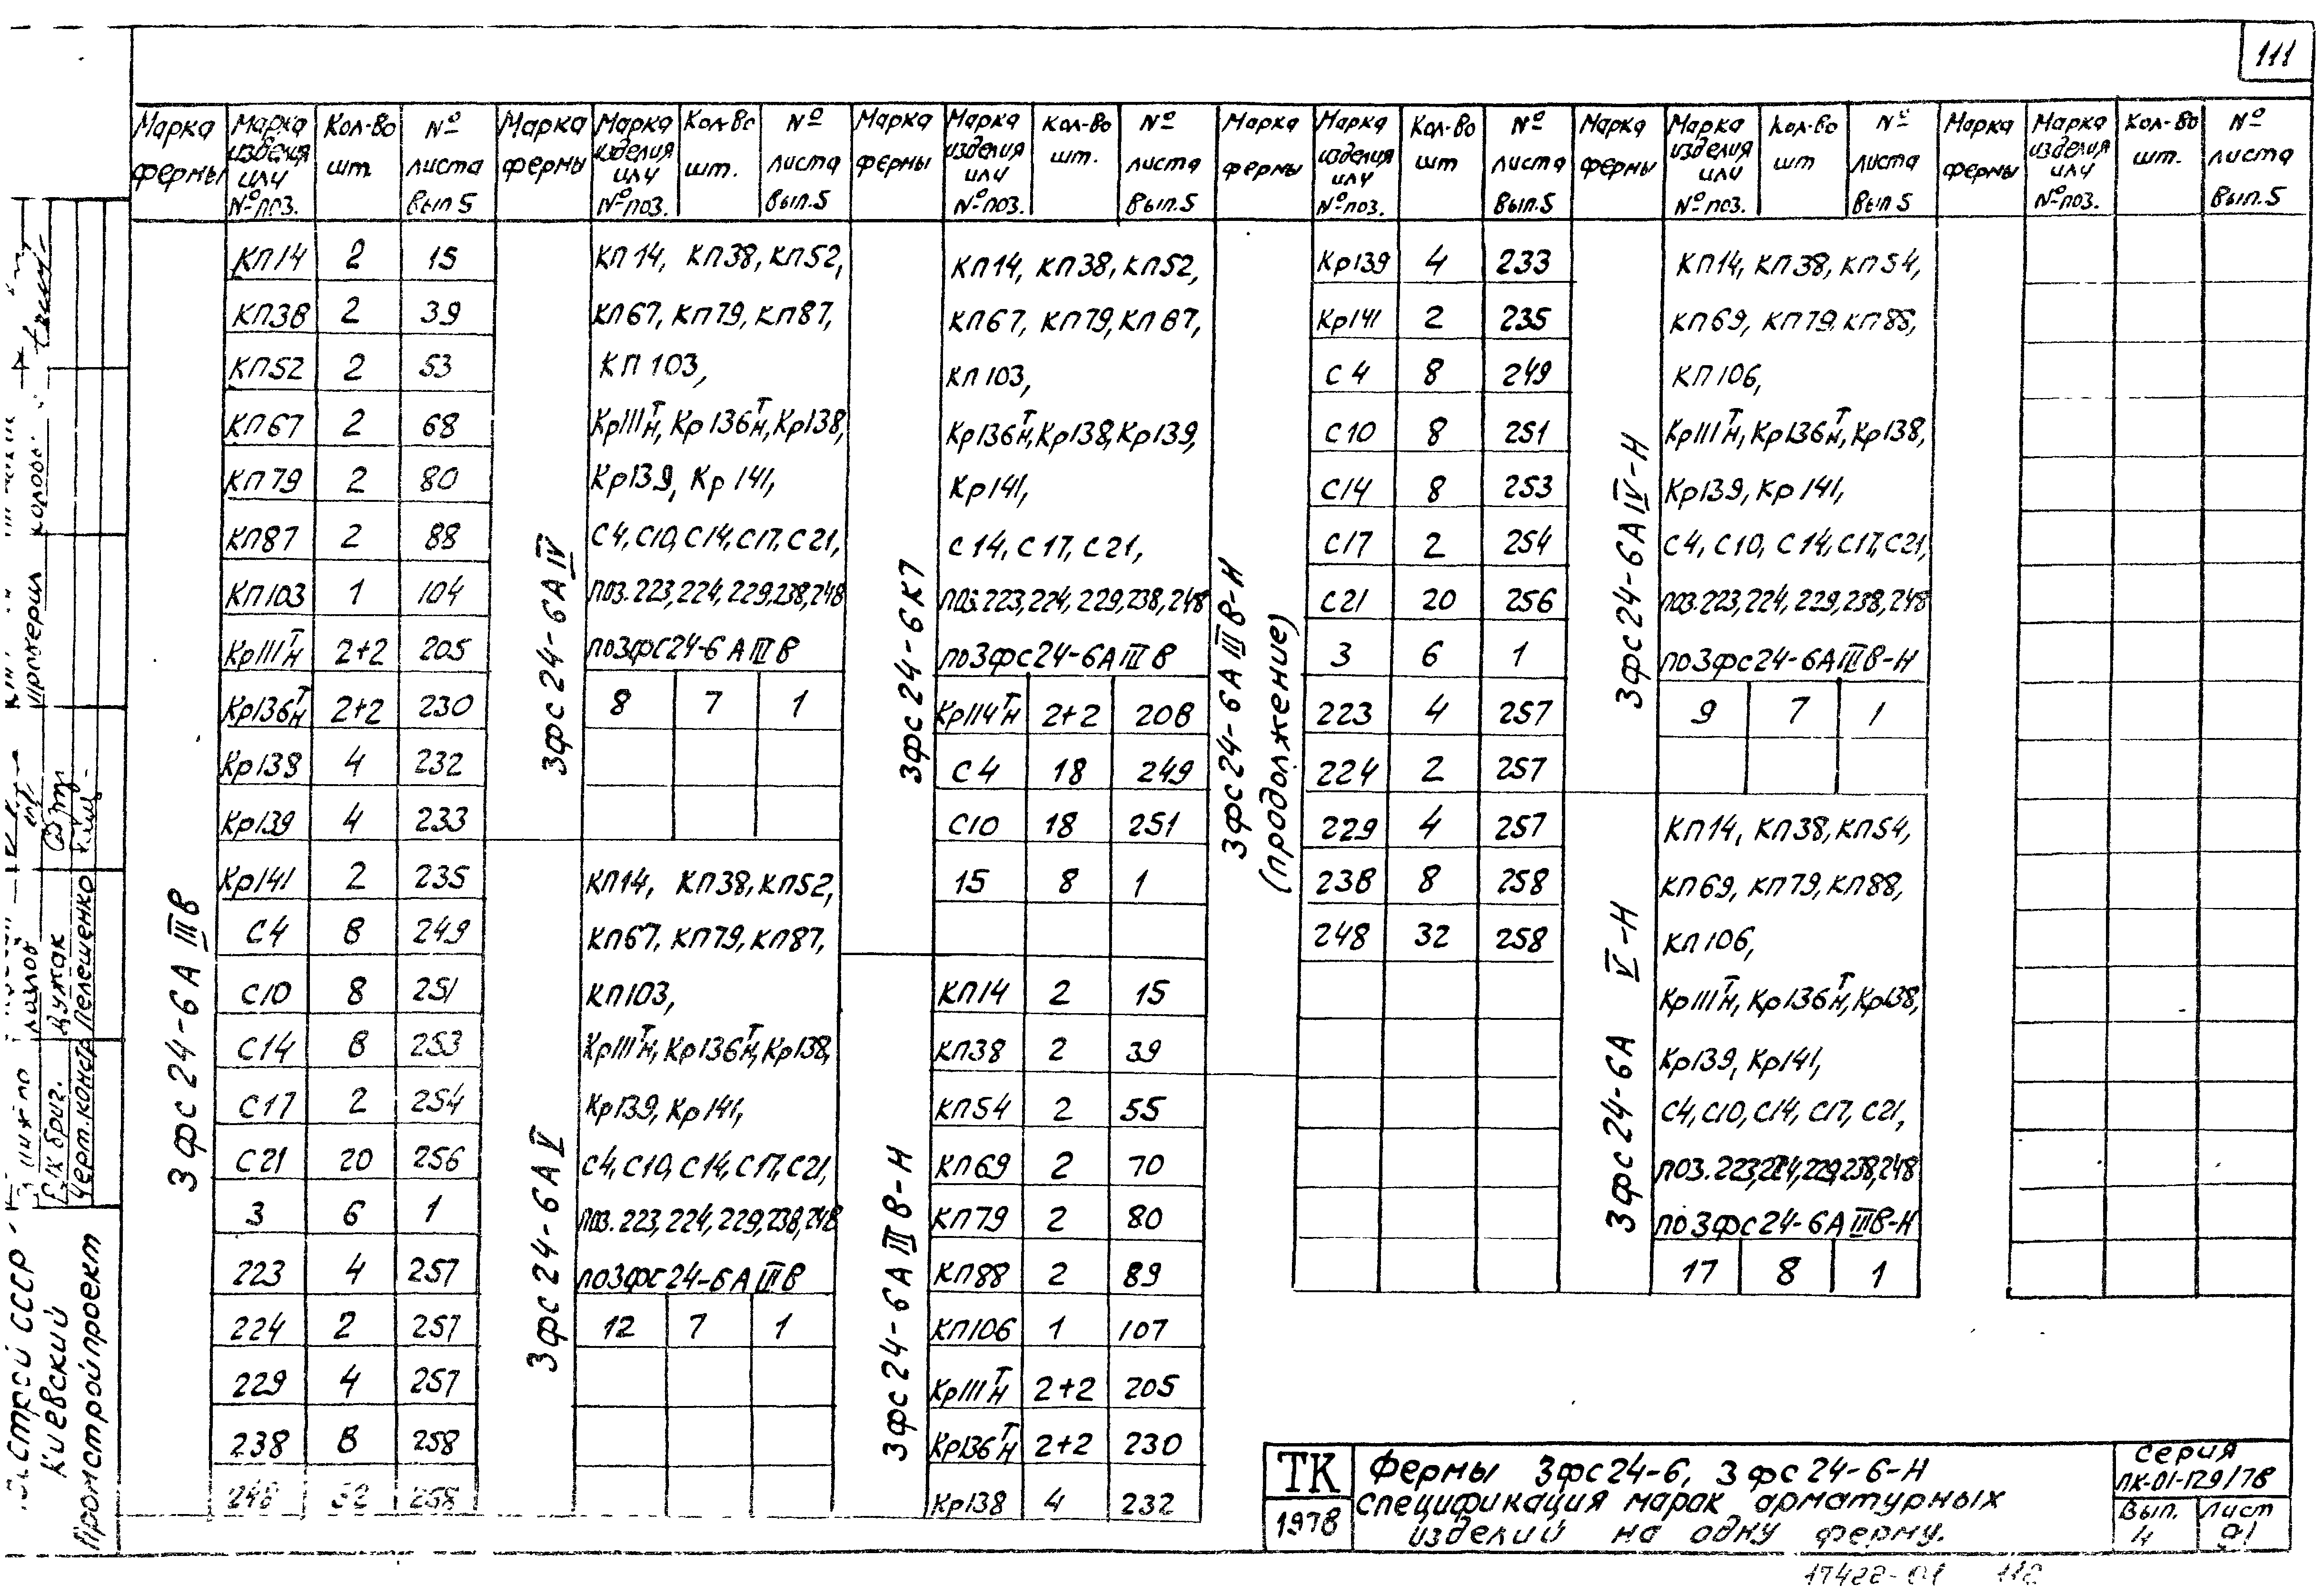 111
Марка фермы | Марка изделия или № поз. | Кол-во шт. | № листа Вып.5 | Марка фермы | Марка изделия или № поз. | Кол-во шт. | № листа Вып.5 | Марка фермы | Марка изделия или № поз. | Кол-во шт. | № листа Вып.5 | Марка фермы | Марка изделия или № поз. | Кол-во шт | № листа Вып.5 | Марка фермы | Марка изделия или № поз. | Кол-во шт | № листа Вып 5 | Марка фермы | Марка изделия или № поз. | Кол-во шт. | № листа Вып.5
3фс24-6АIIIв
КП14 2 15
КП38 2 39
КП52 2 53
КП67 2 68
КП79 2 80
КП87 2 88
КП103 1 104
Кр111Тн 2+2 205
Кр136Тн 2+2 230
Кр138 4 232
Кр139 4 233
Кр141 2 235
С4 8 249
С10 8 251
С14 8 253
С17 2 254
С21 20 256
3 6 1
223 4 257
224 2 257
229 4 257
238 8 258
248 32 258
3фс24-6АIV
КП14, КП38, КП52,
КП67, КП79, КП87,
КП103,
Кр111Тн, Кр136Тн, Кр138,
Кр139, Кр141,
С4, С10, С14, С17, С21,
поз. 223, 224, 229, 238, 248
по 3фс24-6АIIIв
8 7 1
3фс24-6АV
КП14, КП38, КП52,
КП67, КП79, КП87,
КП103,
Кр111Тн, Кр136Тн, Кр138,
Кр139, Кр141,
С4, С10, С14, С17, С21,
поз. 223, 224, 229, 238, 248
по 3фс24-6АIIIв
12 7 1
3фс24-6К7
КП14, КП38, КП52,
КП67, КП79, КП87,
КП103,
Кр136Тн, Кр138, Кр139,
Кр141,
С14, С17, С21,
поз. 223, 224, 229, 238, 248
по 3фс24-6АIIIв
Кр114Тн 2+2 208
С4 18 249
С10 18 251
15 8 1
3фс24-6АIIIв-Н
КП14 2 15
КП38 2 39
КП54 2 55
КП69 2 70
КП79 2 80
КП88 2 89
КП106 1 107
Кр111Тн 2+2 205
Кр136Тн 2+2 230
Кр138 4 232
3фс24-6АIIIв-Н
(продолжение)
Кр139 4 233
Кр141 2 235
С4 8 249
С10 8 251
С14 8 253
С17 2 254
С21 20 256
3 6 1
223 4 257
224 2 257
229 4 257
238 8 258
248 32 258
3фс24-6АIV-Н
КП14, КП38, КП54,
КП69, КП79, КП88,
КП106,
Кр111Тн, Кр136Тн, Кр138,
Кр139, Кр141,
С4, С10, С14, С17, С21,
поз. 223, 224, 229, 238, 248
по 3фс24-6АIIIв-Н
9 7 1
3фс24-6А V-Н
КП14, КП38, КП54,
КП69, КП79, КП88,
КП106,
Кр111Тн, Кр136Тн, Кр138,
Кр139, Кр141,
С4, С10, С14, С17, С21,
поз. 223, 224, 229, 238, 248
по 3фс24-6АIIIв-Н
17 8 1
СССР
Киевский
Промстройпроект
Рук бриг. Цужак
Черт.констр Пелешенко
ТК
1978
Фермы 3фс24-6, 3фс24-6-Н
Спецификация марок арматурных
изделий на одну ферму.
Серия
ПК-01-129/78
Вып. 4
Лист 91
17422-01 112